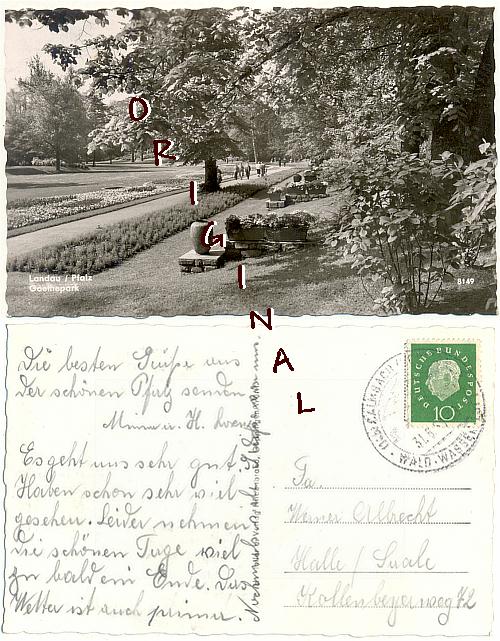 ORIGINAL
Landau / Pfalz
Goethepark
8149
Die besten Grüße aus
der schönen Pfalz senden
u. H.
Es geht uns sehr gut.
Haben schon sehr viel
gesehen. Leider nehmen
die schönen Tage viel
zu bald ein Ende. Das
Wetter ist auch prima.
DEUTSCHE BUNDESPOST
10
WALD-WASSER
Fa.
Werner Albrecht
Halle / Saale
Kollenbeyerweg 72